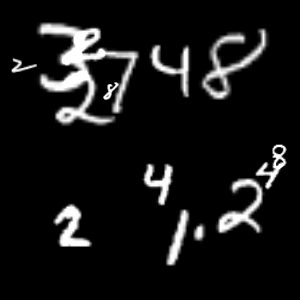 2 3 2 8 7 4 8
2 4 1 . 2 4 8